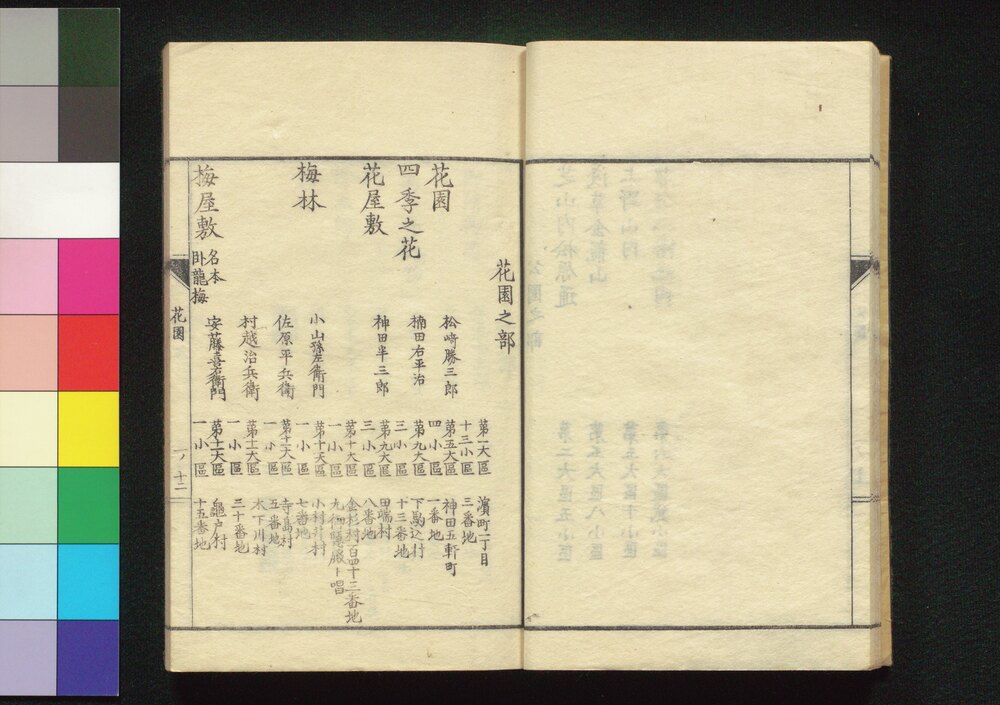 花園之部
第一大區
十三小區
濱町二丁目
三番地
花園
松﨑勝三郎
第五大區
四小區
神田五軒町
一番地
四季之花
楠田右平治
第九大區
三小區
下駒込村
十三番地
花屋敷
神田半三郎
第九大區
三小區
田端村
八番地
第十大區
一小區
金杉村百四十三番地
梅林
小山孫左衛門
第十一大區
一小區
小村井村
七番地
佐原平兵衛
第十一大區
一小區
寺島村
五番地
村越治兵衛
第十一大區
一小區
木下川村
三十番地
梅屋敷
名本
臥龍梅
安藤喜右衛門
第十一大區
一小區
亀戸村
十五番地
花園
十二